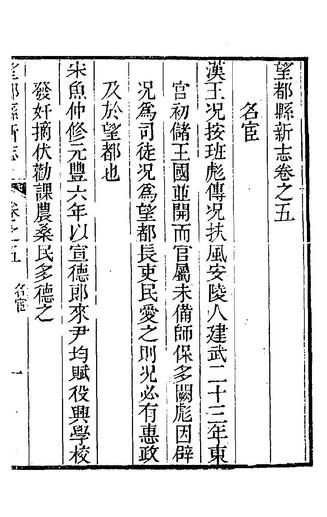 望都縣新志卷之五
名宦
漢王况按班彪傳况扶風安陵人建武二十三年東
官初儲王國並開而官屬未備師保多闕彪因辟
况為司徒况為望都長吏民愛之則况必有惠政
及於望都也
宋魚仲修元豐六年以宣德郎來尹均賦役興學校
發奸摘伏勸課農桑民多德之
望都縣新志
卷之五
名宦
一